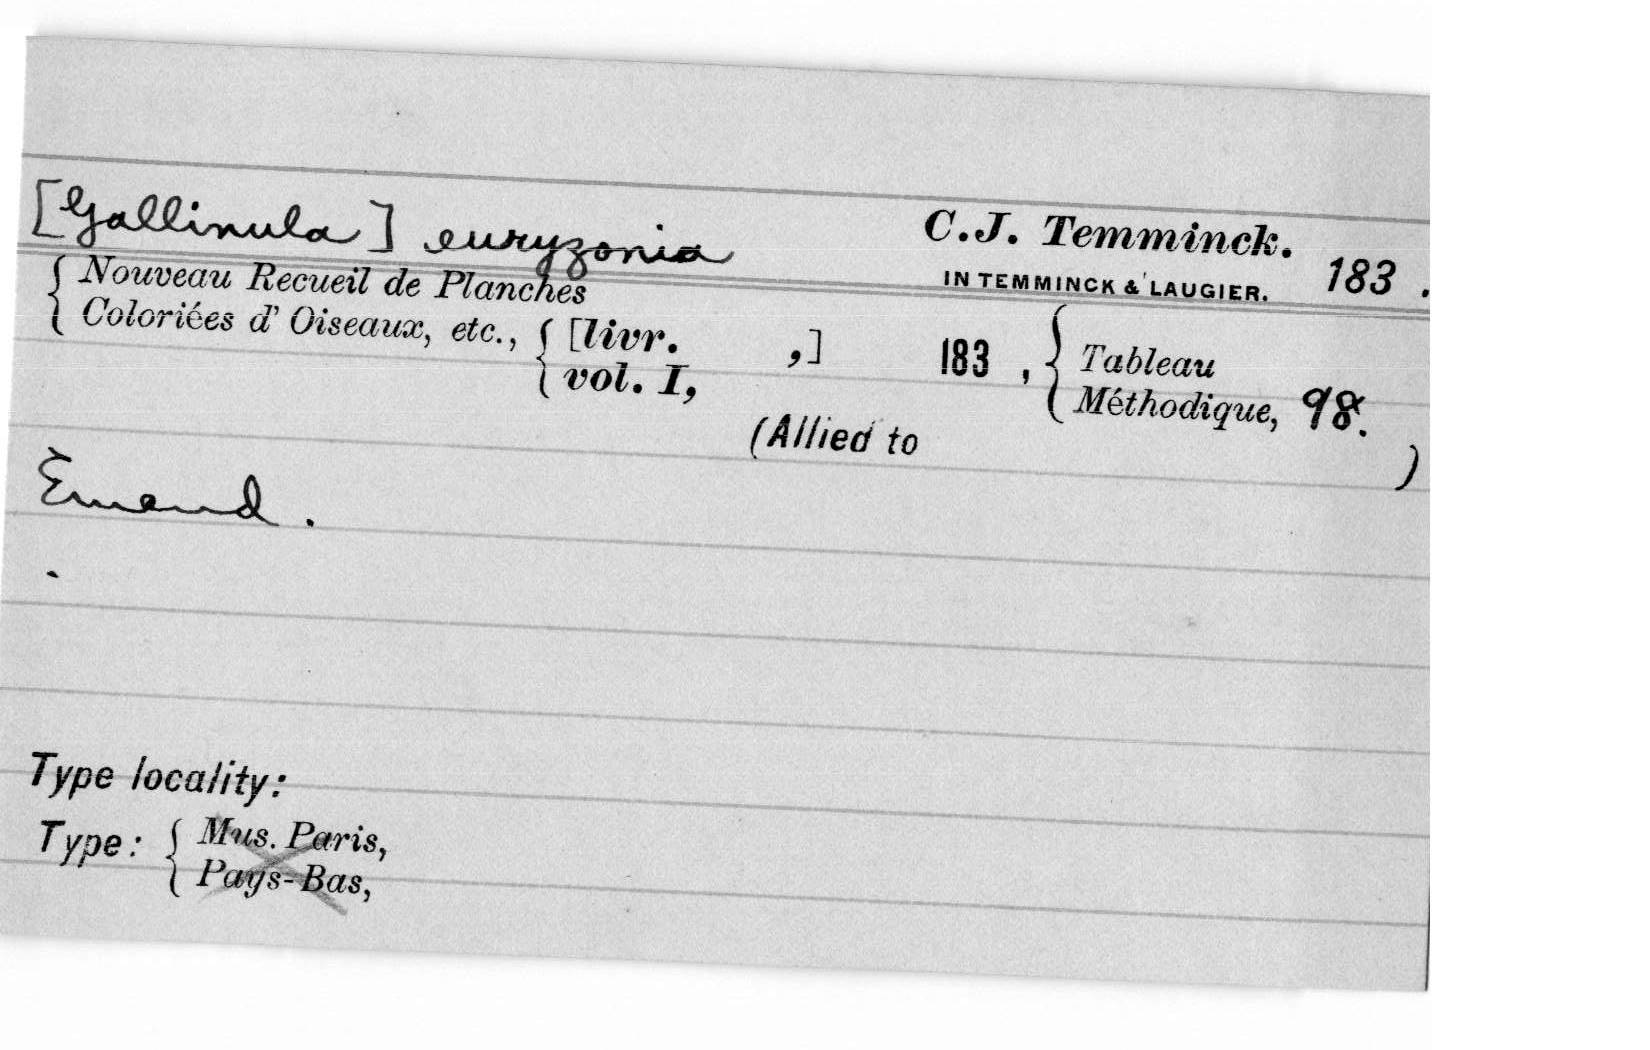 [Gallinula] euryzonia C.J. Temminck.
IN TEMMINCK & LAUGIER. 183 .
{ Nouveau Recueil de Planches
Coloriées d' Oiseaux, etc., { [livr. ,] 183 , { Tableau
vol. I, Méthodique, 98.
(Allied to )
Emend.
Type locality:
Type: { Mus. Paris,
Pays-Bas,